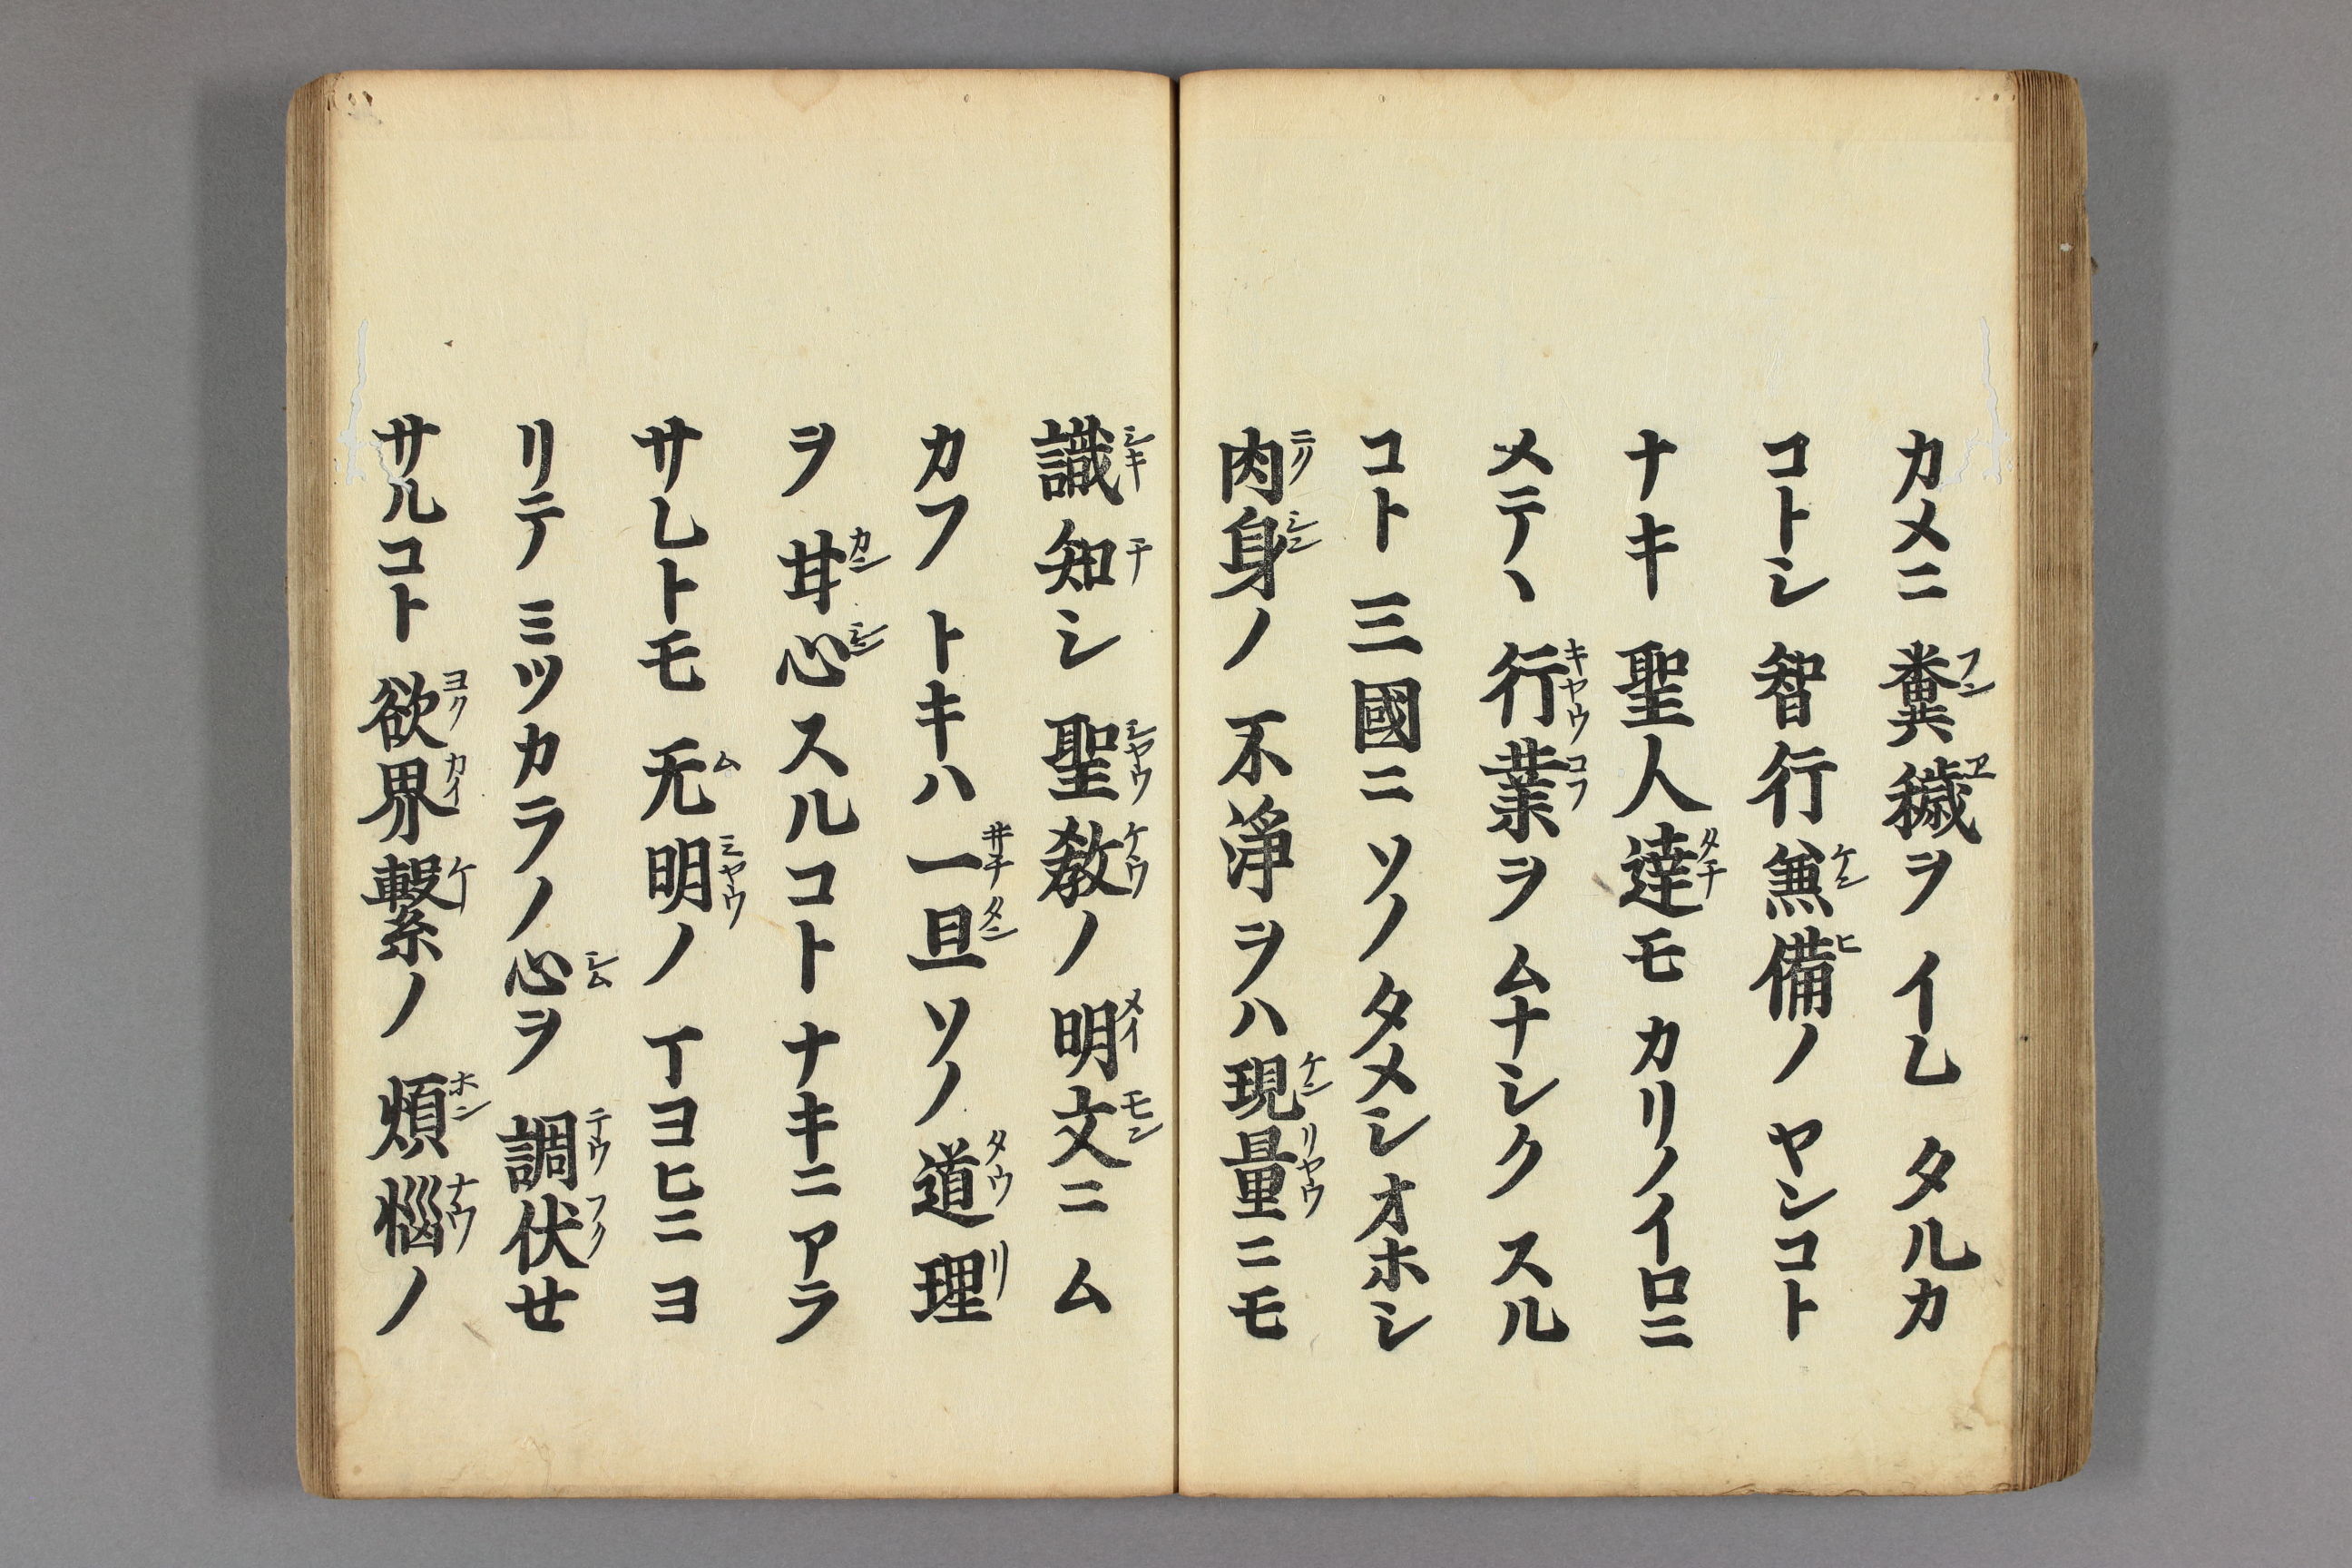 カメニ糞穢ヲイレタルカ
コトシ智行兼備ノヤンコト
ナキ聖人達モカリノイロニ
メテヽ行業ヲムナシクスル
コト三國ニソノタメシオホシ
肉身ノ不浄ヲハ現量ニモ
識知シ聖教ノ明文ニム
カフトキハ一旦ソノ道理
ヲ甘心スルコトナキニアラ
サレトモ无明ノヱヨヒニヨ
リテミツカラノ心ヲ調伏セ
サルコト欲界繋ノ煩惱ノ